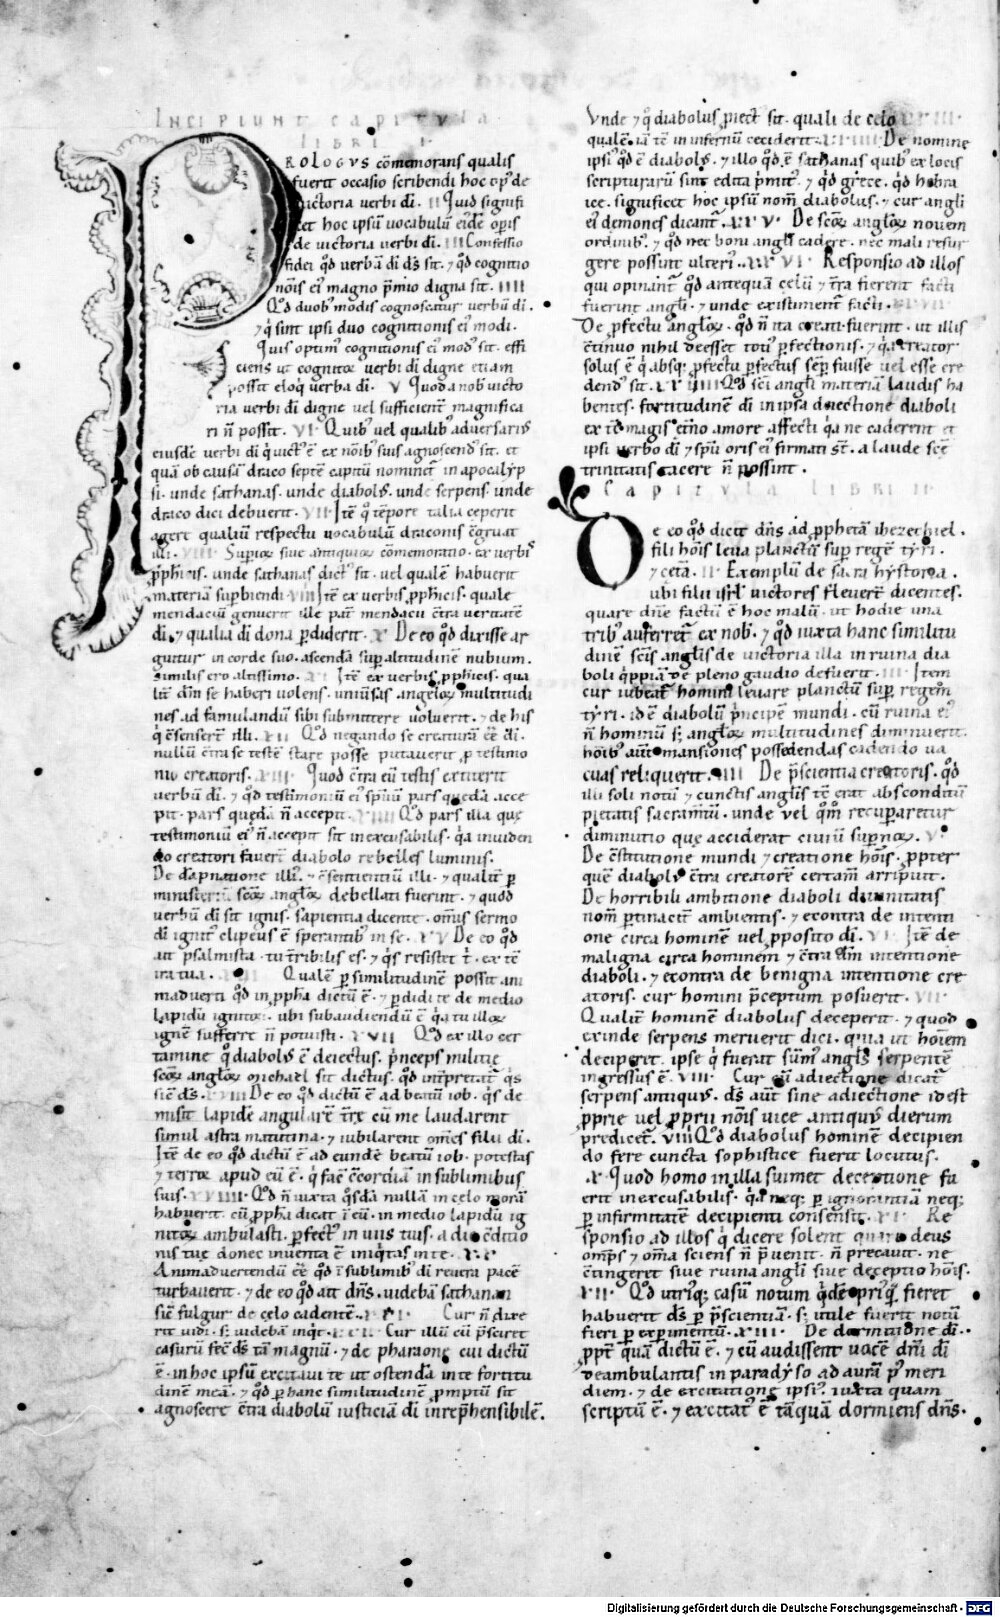 INCIPIUNT CAPITVLA
LIBRI I
PROLOGVS cōmemorans qualis
fuerit occasio scribendi hoc opꝰ de
victoria verbi dī. II Quid signifi
cet hoc ipsū vocabulū eiꝰdē opis
de victoria verbi dī. III Confessio
fidei qđ verbū dī dš sit. ⁊ qđ cognitio
nōis eiꝰ magno p̄mio digna sit. IIII
Qđ duobꝰ modis cognoscatur verbū dī.
⁊ q̇ sint ipsi duo cognitionis eiꝰ modi.
Quis optimꝰ cognitionis eiꝰ modꝰ sit. effi
ciens ut cognitor verbi dī digne etiam
possit eloq̇ verba dī. V Quod a nob̄ victo
ria verbi dī digne vel sufficient̄ magnifica
ri n̄ possit. VI. Quibꝰ vel qualibꝰ adversariis
eiusdē verbi dī q̇ vict' ē ex nōibꝰ suis agnoscend' sit. et
quā ob causā draco septē capitū nominet̄ in apocalyp
si. unde sathanas. unde diabolꝰ. unde serpens. unde
draco dici debuerit. VII. Itē q° tēpore talia ceperit
agere qualiū respectu vocabulū draconis cōgruat
illi. VIII Supior sive antiquior cōmemoratio. ex verbis
p̱phicis. unde sathanas dictꝰ sit. vel qualē habuerit
materiā supbiendi. VIIII Itē ex verbis p̱phicis. quale
mendaciū genuerit ille pat̄ mendacii cōtra veritatē
dī. ⁊ qualia dī dona p̱diderit. X De eo qđ dixisse ar
guitur in corde suo. ascendā sup altitudinē nubium.
similis ero altissimo. XI Itē ex verbis p̱phicis. qua
lit̄ dm̄ se haberi volens. universas angeloꝝ multitudi
nes. ad famulandū sibi submittere voluerit. ⁊ de his
q̇ cōsenserē illi. XII Qđ negando se creaturā eē dī.
nullū cōtra se testē stare posse putaverit p̱ testimo
nio creatoris. XIII Quod cōtra eū testis extiterit
verbū dī. ⁊ qđ testimoniū eiꝰ spūū pars quedā acce
pit. pars quędā n̄ accepit. XIIII Qđ pars illa quę
testimoniū eiꝰ n̄ accepit sit inexcusabilis. q̇a inviden
do creatori faverit diabolo rebelles luminis.
De dāpnatione illiꝰ. ⁊ cōsentientiū illi. ⁊ qualit̄ p̱
ministeriū scōꝝ angloꝝ debellati fuerint. ⁊ quod
verbū dī sit ignis. sapientia dicente. omīs sermo
dī ignitꝰ clipeus ē sperantibꝰ in se. XV De eo qđ
ait psalmista. tu t̄ribilis es. ⁊ q̇s resistet t̄. ex tē
ira tua. Qualē p̱ similitudinē possit ani
madverti qđ in p̱pha dictū ē. ⁊ p̱didi te de medio
lapidū ignitoꝝ. ubi subaudiendū ē q̇a tu illoꝝ
ignē sufferre n̄ potuisti. XVII Qđ ex illo cer
tamine q° diabolꝰ ē deiectus. p̄nceps militię
scōꝝ angloꝝ michael sit dictus. qđ int̄pretat̄ q̇s
sic dš. XVIII De eo qđ dictū ē ad beatū iob. q̇s de
misit lapidē angularē t̄rę cū me laudarent
simul astra matutina. ⁊ iubilarent om̄s filii dī.
Itē de eo qđ dictū ē ad eundē beatū iob. potestas
⁊ terror apud eū ē. q̇ facit cōcordiā in sublimibus
suis. XVIIII. Qđ n̄ iuxta q̇sdā nullā in celo morā
habuerit. cū p̱pha dicat ī eū. in medio lapidū ig
nitoꝝ ambulasti. p̱fectꝰ in viis tuis. a die cōditio
nis tuę donec inventa ē iniq̇tas in te. XX
Animadvertendū eē qđ ī sublimibꝰ dī revera pacē
turbaverit. ⁊ de eo qđ ait dn̄s. videbā sathanan
sic fulgur de celo cadentē. XXI. Cur n̄ dixe
rit vidi. s; videbā inq̇t. XXII. Cur illū cū p̄sciret
casurū fecꝰ dš tā magnū. ⁊ de pharaone cui dictū
ē. in hoc ipsū excitavi te ut ostendā in te fortitu
dinē meā. ⁊ qđ p̱ hanc similitudinē p̄mptū sit
agnoscere cōtra diabolū iusticiā dī inrep̄hensibilē.
Vnde ⁊ q° diabolus p̱iect' sit. quali de celo
qualē. iā tē in infernū ceciderit. De nomine
ipsiꝰ qđ ē diabolꝰ. ⁊ illo qđ ē sathanas quibꝰ ex locis
scripturarū sint edita p̄mit'. ⁊ qđ grece. qđ hebra
ice. significet hoc ipsū nom̄ diabolus. ⁊ cur angli
eiꝰ demones dicant̄. XXV. De scōꝝ angloꝝ novem
ordinibꝰ. ⁊ qđ nec boni angli cadere. nec mali resur
gere possint ulteriꝰ. XXVI. Responsio ad illos
qui opinant̄ qđ antequā celū ⁊ t̄ra fierent facti
fuerint angli. ⁊ unde existiment̄ facti.
De p̱fectu angloꝝ. qđ n̄ ita creati fuerint. ut illis
cōtinuo nihil deesset totiꝰ p̱fectionis. ⁊ q̇a creator
solus ē q̇ absq; p̱fectu p̱fectus semp̱ fuisse vel esse cre
dendꝰ sit. Qđ sci angli materiā laudis ha
bentes. fortitudinē dī in ipsa deiectione diaboli
ex t̄ magis et̄no amore affecti q̇a ne caderent et
ipsi verbo dī ⁊ spū oris eiꝰ firmati st̄. a laude scē
trinitatis tacere n̄ possint.
CAPITVLA LIBRI II
De eo qđ dicit dn̄s ad p̱phetā ihezechiel.
fili hōis leva planctū sup̱ regē tyri.
⁊ cetā. II. Exemplū de sacra hystoria.
ubi filii isrl victores flevert̄ dicentes.
quare dn̄e factū ē hoc malū. ut hodie una
tribꝰ auferret̄ ex nob̄. ⁊ qđ iuxta hanc similitu
dinē scīs anglis de victoria illa in ruina dia
boli q̇ppiā de pleno gaudio defuerit. III Item
cur iubeat̄ homini levare planctū sup̱ regem
tyri. id ē diabolū p̄ncipem mundi. cū ruina eiꝰ
n̄ hominū s; angloꝝ multitudines diminuerit.
hoībꝰ aut̄ mansiones possidendas cadendo va
cuas reliquerit. IIII De p̄scientia creatoris. qđ
illi soli notū ⁊ cunctis anglis tē erat absconditū
pietatis sacram̄tū. unde vel qm̄o recuparetur
diminutio quę acciderat civiū supnoꝝ. V.
De cōstitutione mundi ⁊ creatione hōis. p̱pter
quē diabolꝰ cōtra creatorē certam̄ arripuit.
De horribili ambitione diaboli divinitatis
nom̄ ptinacit̄ ambientis. ⁊ econtra de intenti
one circa hominem vel p̱posito dī. VI. Itē de
maligna circa hominem ⁊ cōtra dm̄ intentione
diaboli. ⁊ econtra de benigna intentione cre
atoris. cur homini p̄ceptum posuerit. VII.
Qualit̄ hominē diabolus deceperit. ⁊ quod
exinde serpens meruerit dici. quia ut hoīem
deciperet. ipse q̇ fuerat sūmꝰ anglꝰ serpentē
ingressus ē. VIII. Cur cū adiectione dicat̄
serpens antiquꝰ. dš aut̄ sine adiectione id est
p̱prie vel p̱prii nōis vice antiquꝰ dierum
predicet̄. VIIII Qđ diabolus hominē decipien
do fere cuncta sophistice fuerit locutus.
X. Quod homo in illa suimet deceptione fu
erit inexcusabilis. q̇a neq; p̱ ignorantiā neq;
p̱ infirmitatē decipienti consensit. XI. Re
sponsio ad illos q̇ dicere solent quare deus
omp̄s ⁊ om̄a sciens n̄ p̄venit. n̄ precavit. ne
cōtingeret sive ruina angli sive deceptio hōis.
XII. Qđ utriꝰq; casū notum q̇dē p̱riꝰq̄ fieret
habuerit dš p̱ p̄scientiā. s; utile fuerit notū
fieri p̱ experimentū. XIII. De dormitione dī.
p̱pt̄ quā dictū ē. ⁊ cū audissent vocē dn̄i dī
deambulantis in paradyso ad aurā p̱ meri
diem. ⁊ de excitatione ipsiꝰ. iuxta quam
scriptū ē. ⁊ excitatꝰ ē tāquā dormiens dn̄s.
Digitalisierung gefördert durch die Deutsche Forschungsgemeinschaft - DFG